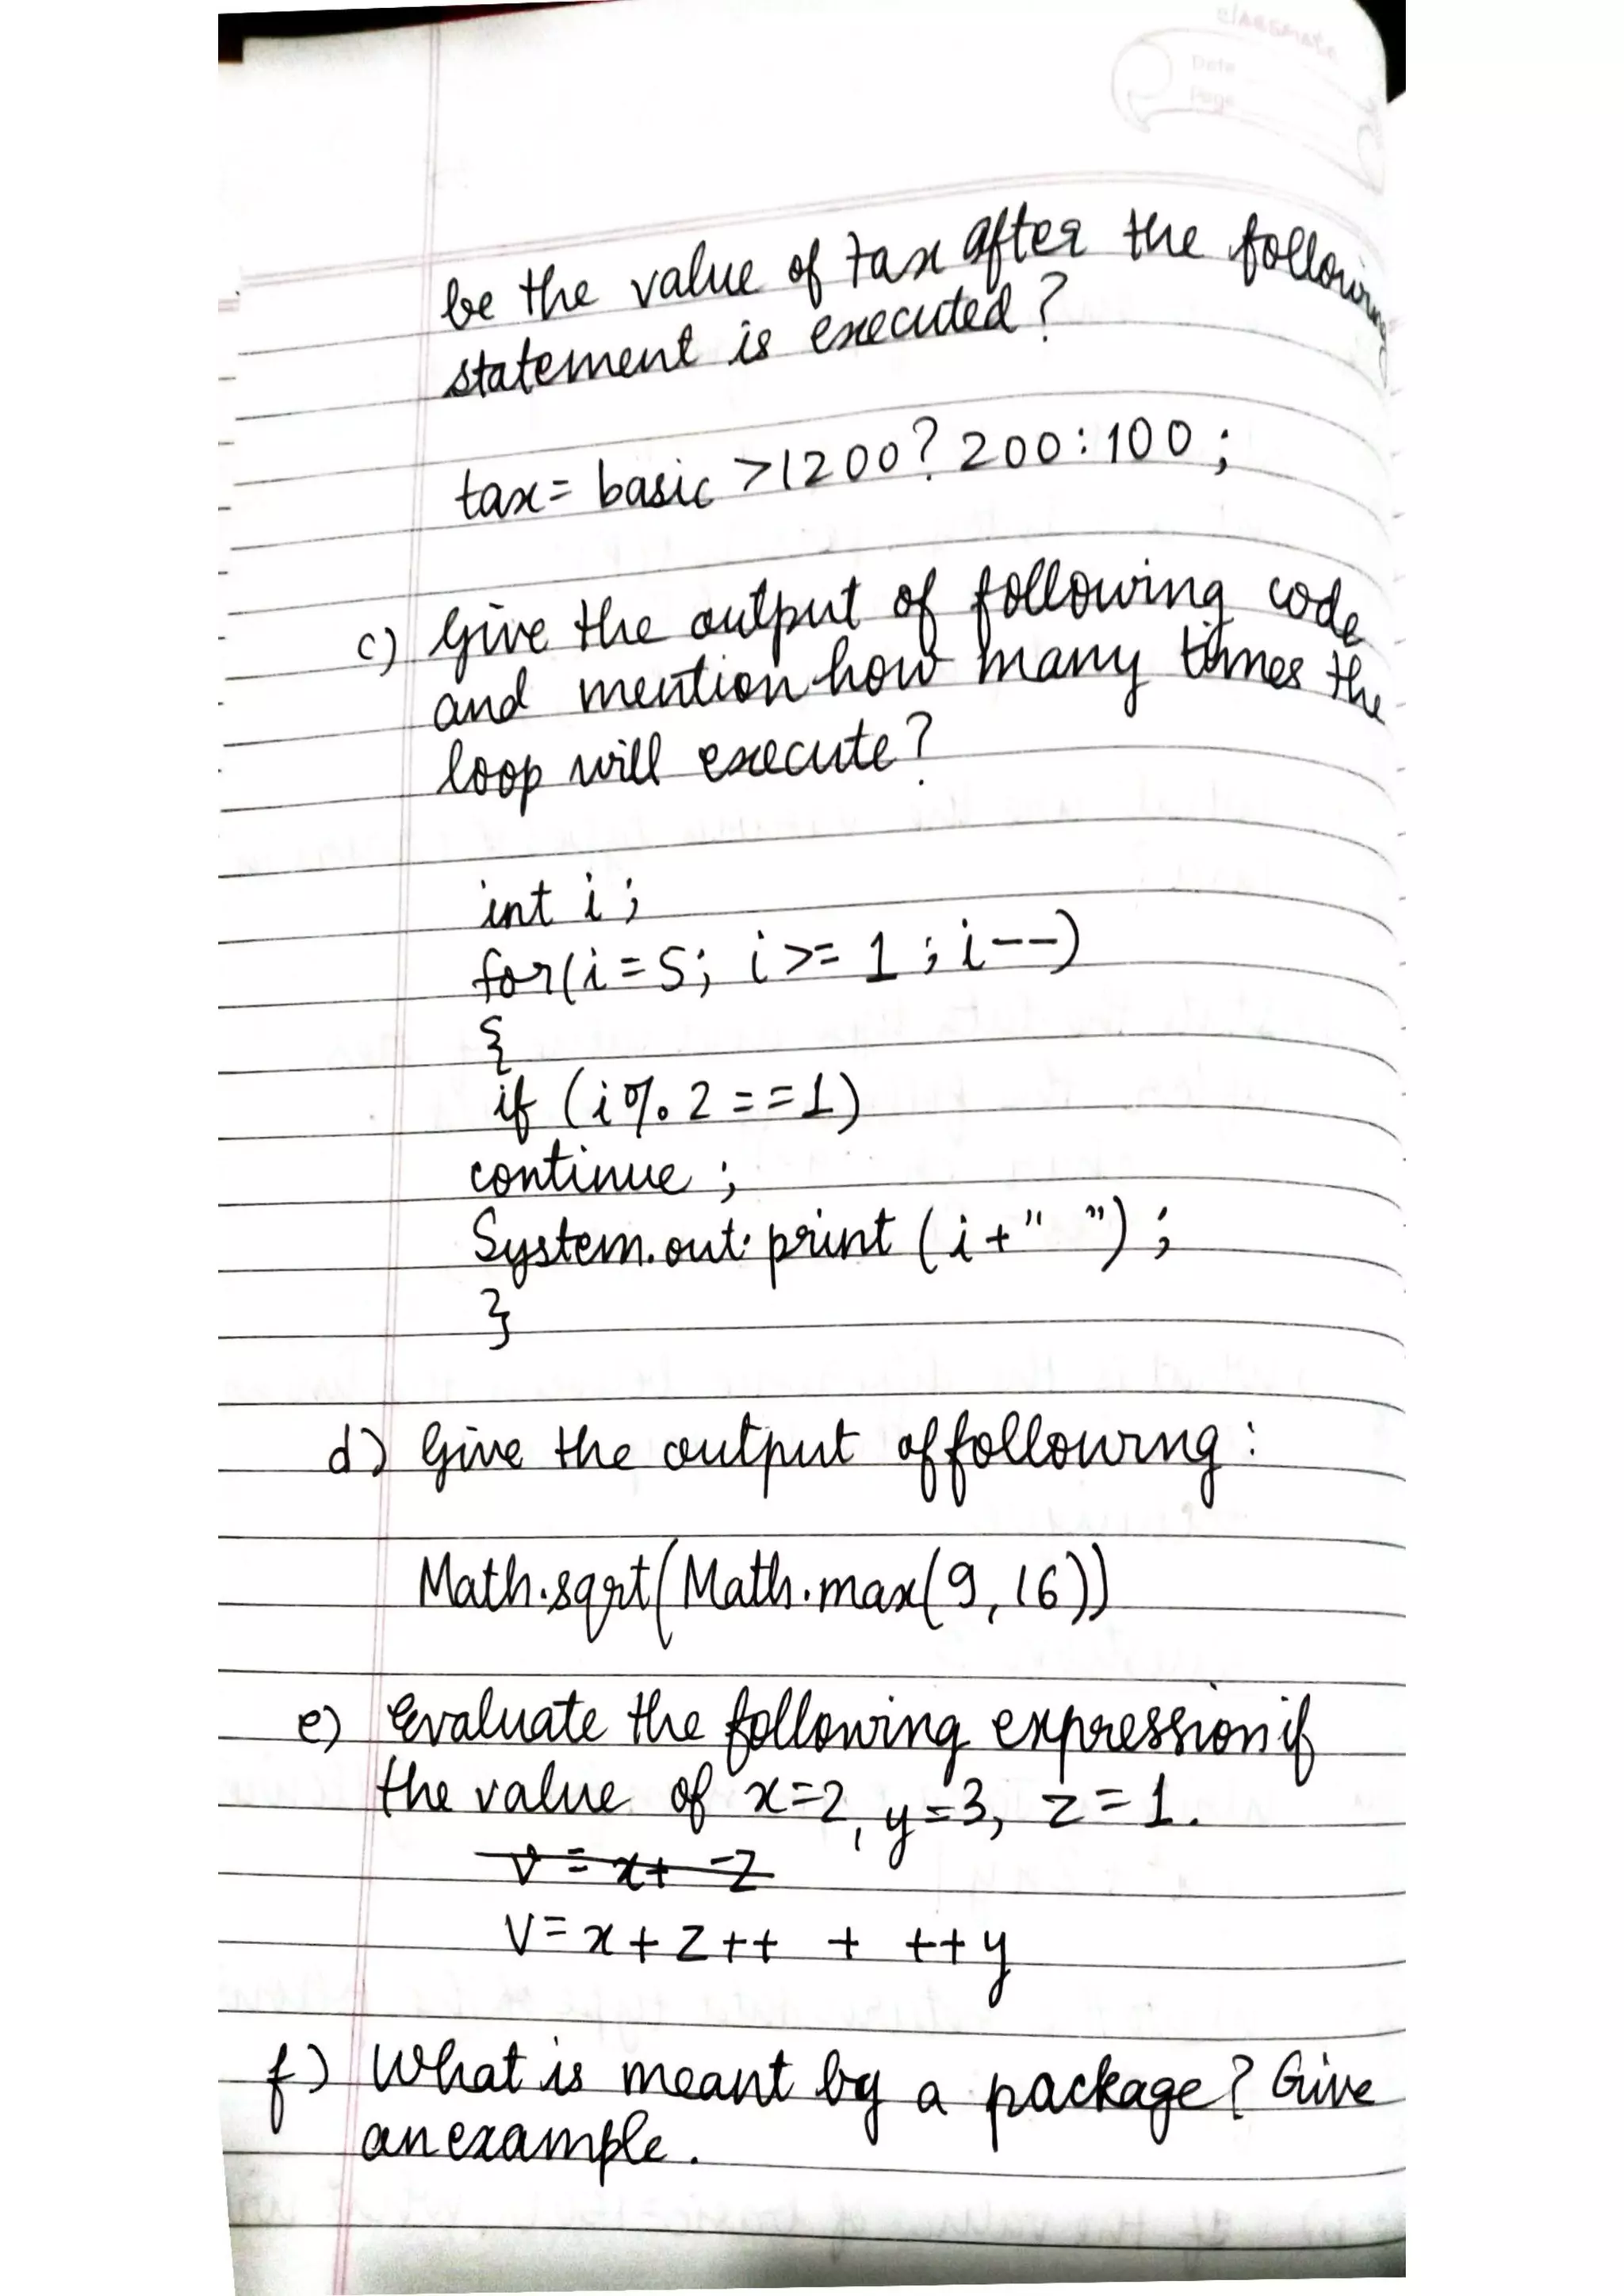 classmate
Date
Page
be the value of tax after the following
statement is executed?
tax= basic >1200? 200:100 ;
c) Give the output of following code
and mention how many times the
loop will execute?
int i ;
for(i=5; i >= 1 ; i--)
{
if (i%2 ==1)
continue ;
System.out.print (i+" ") ;
}
d) Give the output of following :
Math.sqrt(Math.max(9,16))
e) Evaluate the following expression if
the value of x=2, y=3, z=1.
v = x+ -z
v= x + z++ + ++y
f) What is meant by a package? Give
an example.